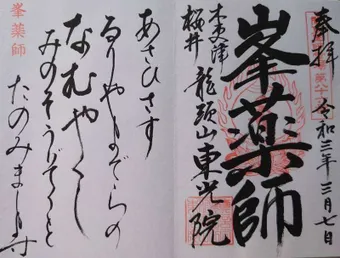 奉拝
令和三年三月七日
峯薬師
木更津
桜井
龍頭山東光院
あさひさす
るりやまでらの
なむやくし
みのそうびょうと
たのみまします
峯薬師